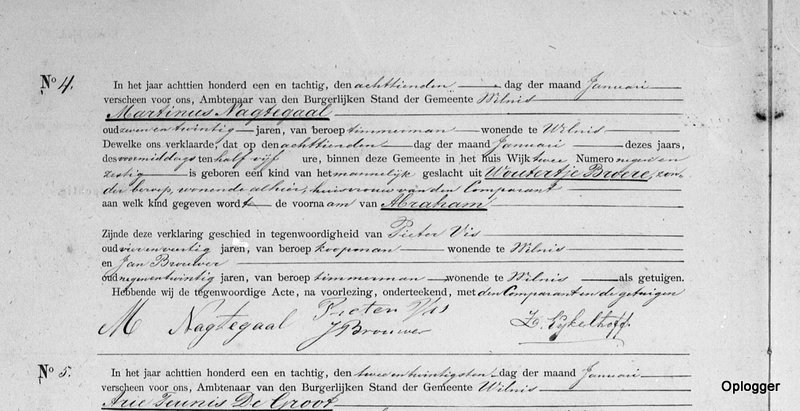 No 4. In het jaar achttien honderd een en tachtig, den achttienden dag der maand Januari
verscheen voor ons, Ambtenaar van den Burgerlijken Stand der Gemeente Wilnis
Martinus Nagtegaal
oud zeven en twintig jaren, van beroep timmerman wonende te Wilnis
Dewelke ons verklaarde, dat op den achttienden dag der maand Januari dezes jaars,
des voormiddags ten half vijf ure, binnen deze Gemeente in het huis Wijk twee Numero negen en
zestig is geboren een kind van het mannelijk geslacht uit Woutertje Broere, zon-
der beroep, wonende alhier, huisvrouw van den Comparant
aan welk kind gegeven wordt de voornaam van Abraham
Zijnde deze verklaring geschied in tegenwoordigheid van Pieter Vis
oud vier en veertig jaren, van beroep koopman wonende te Wilnis
en Jan Brouwer
oud negen en twintig jaren, van beroep timmerman wonende te Wilnis als getuigen.
Hebbende wij de tegenwoordige Acte, na voorlezing, onderteekend, met den Comparant en de getuigen
M Nagtegaal Pieter Vis
J Brouwer
No 5. In het jaar achttien honderd een en tachtig, den twee en twintigsten dag der maand Januari
verscheen voor ons, Ambtenaar van den Burgerlijken Stand der Gemeente Wilnis
Arie Teunis De Groot
Oplogger